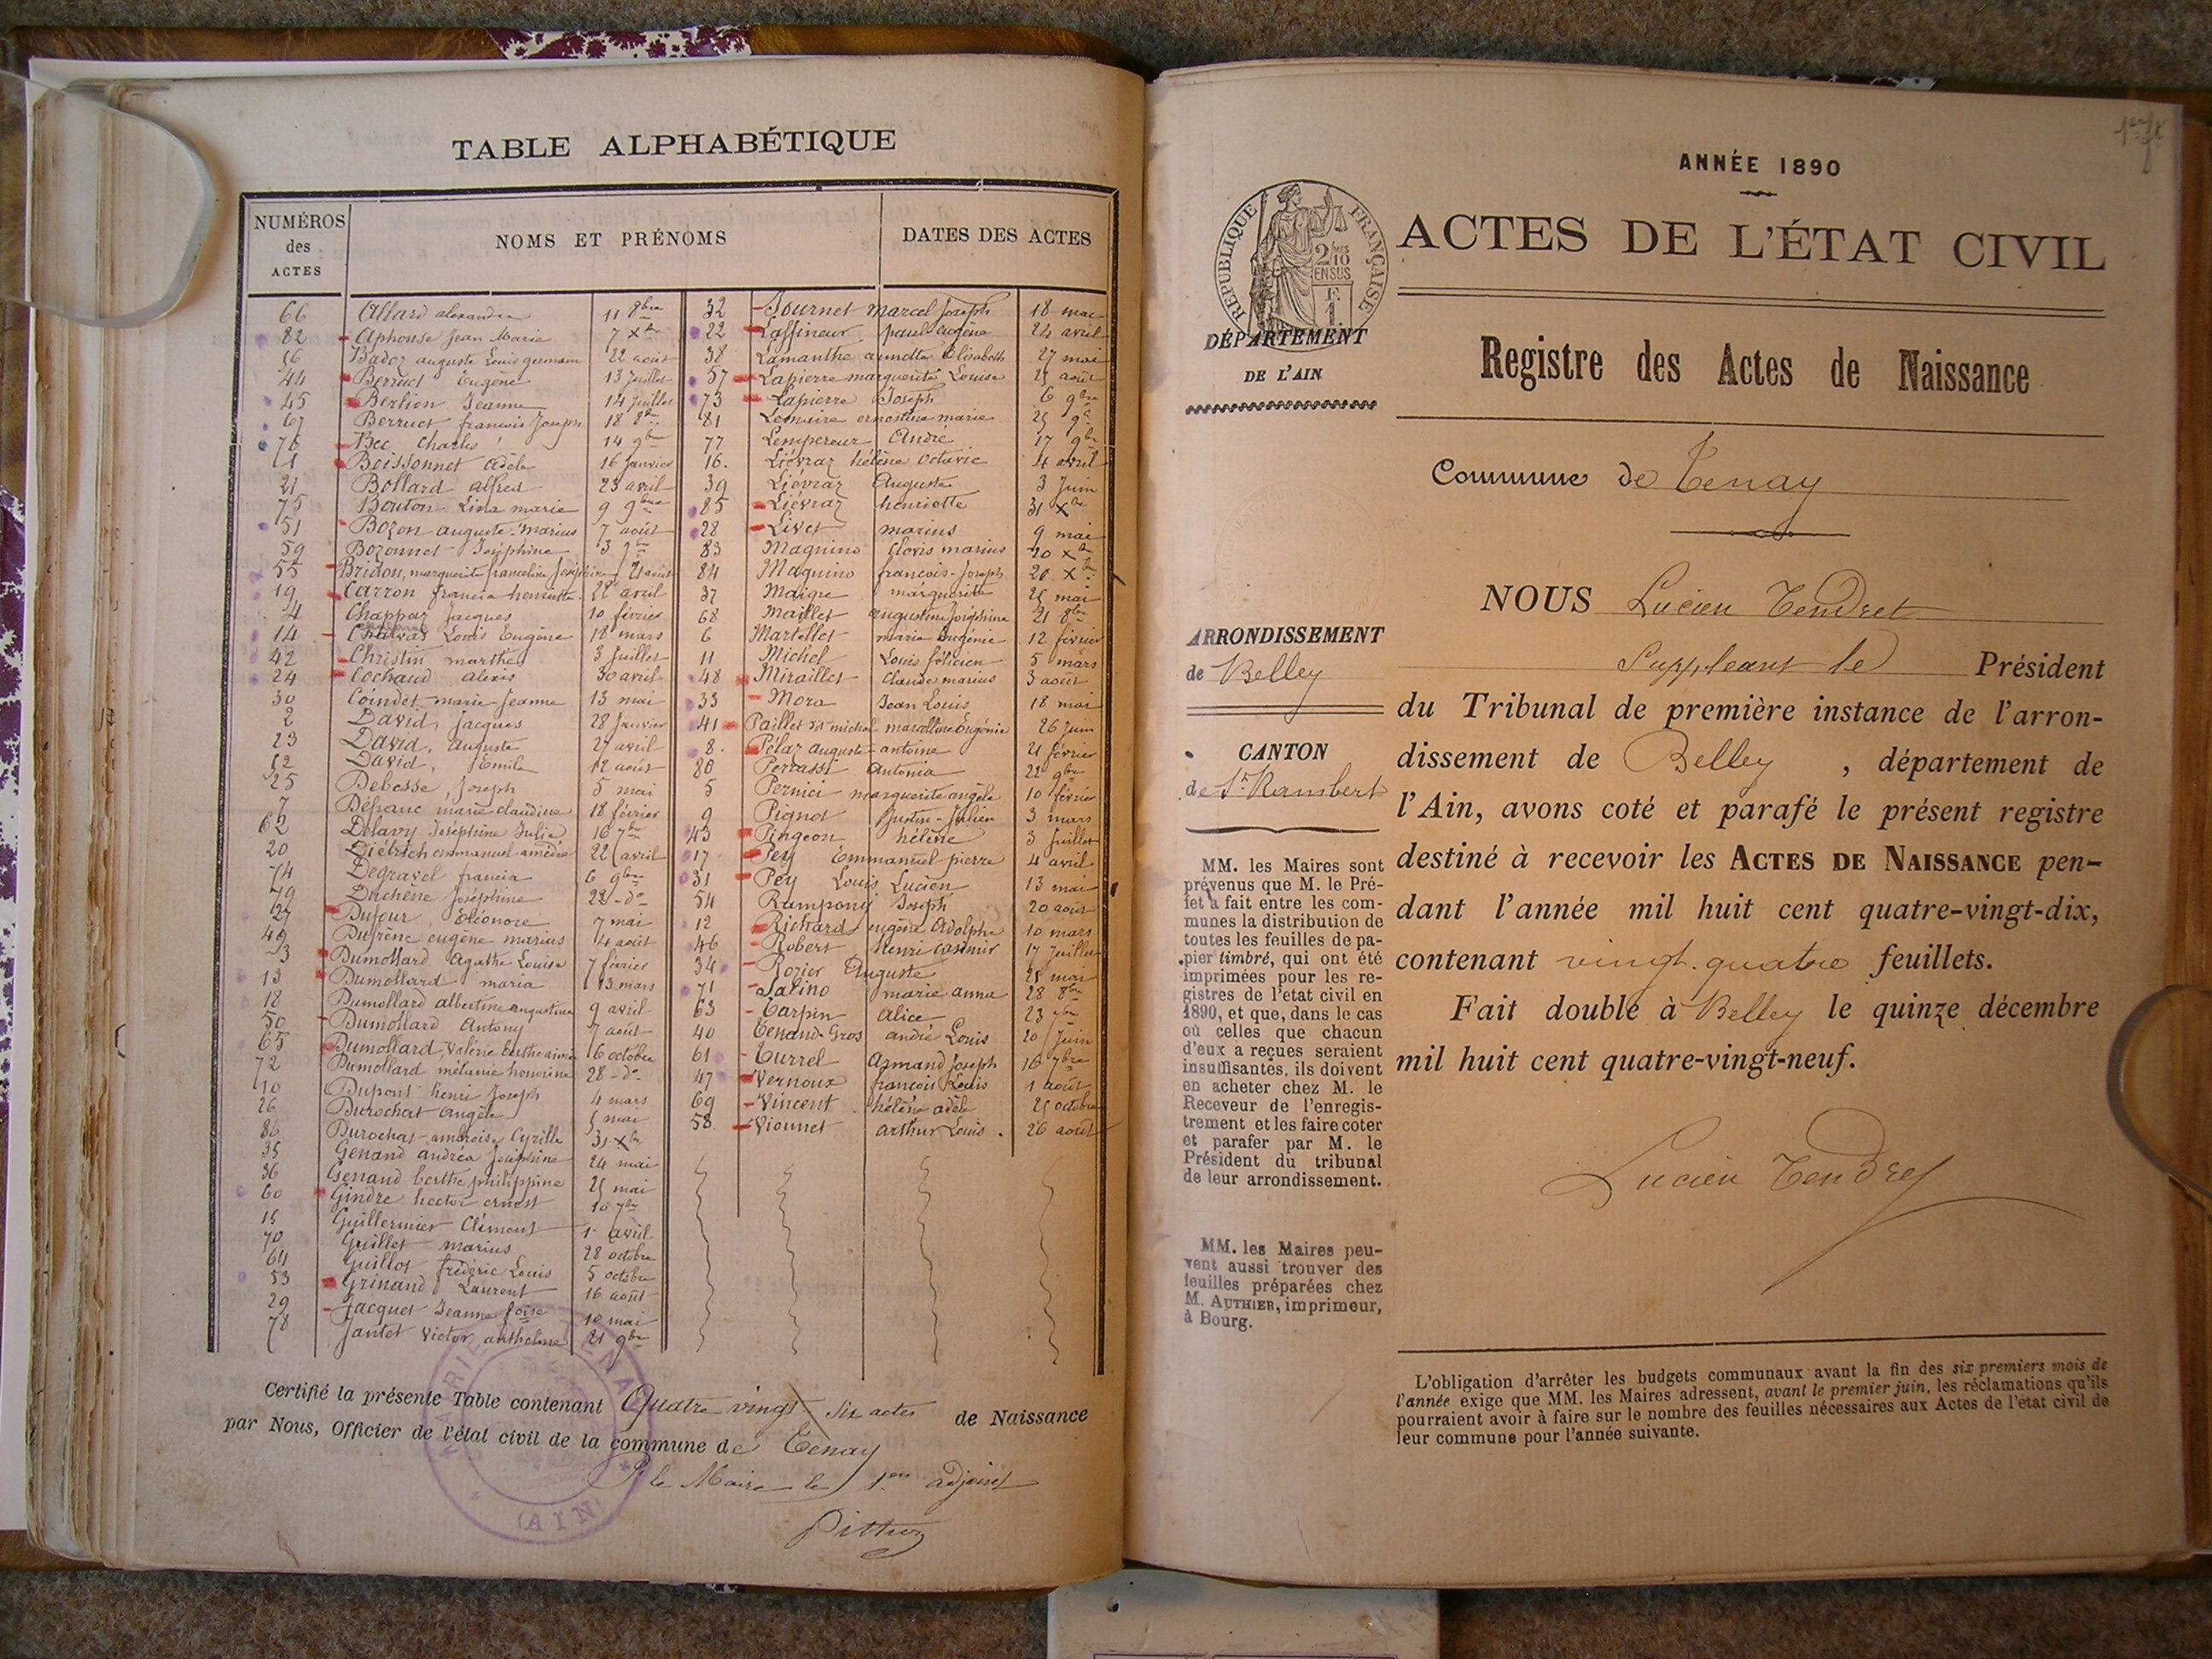 TABLE ALPHABÉTIQUE
NUMÉROS des ACTES
NOMS ET PRÉNOMS
DATES DES ACTES
66 Allard alexandre 11 8bre
82 Alphonse Jean Marie 7 Xbre
Badoz auguste Louis germain 22 août
44 Berruet Eugène 13 Juillet
45 Berlion Jeanne 14 Juillet
67 Berruet francois Joseph 18 8bre
76 Bec Charles 14 9bre
1 Boissonnet Adèle 16 Janvier
21 Bollard alfred 23 avril
75 Bouton Lina marie 9 9bre
51 Bozon auguste-marius 7 août
59 Bozonnet Joséphine 3 7bre
55 Bridon, marguerite francoline Joséphine 21 août
19 Carron francia henriette 22 avril
4 Chappaz Jacques 10 février
14 Louis Eugène 12 mars
42 Christin marthe 3 Juillet
24 Cochaud alexis 30 avril
30 Coindet marie Jeanne 13 mai
2 David, Jacques 28 Janvier
23 David, auguste 27 avril
52 David, Emile 12 août
25 Debosse, Joseph 5 mai
7 Défranc marie claudine 18 février
62 Delavy Joséphine Julie 16 7bre
20 Diétrich emmanuel amédée 22 avril
74 Degravel francia 6 9bre
79 Duchêne Joséphine 22 do
27 Dufour, Eléonore 7 mai
49 Dufrène eugène marius 4 août
3 Dumollard Agathe Louise 7 février
13 Dumollard maria 13 mars
18 Dumollard albertine augustine 9 avril
50 Dumollard Antony 7 août
65 Dumollard, Valérie Berthe 6 octobre
72 Dumollard mélanie honorine 28 do
10 Dupont henri Joseph 4 mars
26 Durochat Angèle 5 mai
86 Durochat ambroise Cyrille 31 Xbre
35 Genand andréa Joséphine 24 mai
36 Genand berthe philippine 25 mai
60 Gindre hector ernest 10 7bre
15 Guillermier Clément 1er avril
70 Guillet marius 28 octobre
64 Guillot frédéric Louis 5 octobre
53 Grinand Laurent 16 août
29 Jacquet Jeanne foise 10 mai
78 Jantet Victor anthelme 21 9bre
32 Journet Marcel Joseph 18 mai
22 Laffineur paul eugène 24 avril
38 Lamanthe Elisabeth 27 mai
57 Lapierre marguerite Louise 25 août
73 Lapierre Joseph 6 9bre
81 Lemaire ernestine marie 25 9bre
77 Lempereur André 17 9bre
16. Liévraz hélène octavie 4 avril
39 Liévraz Auguste 3 Juin
85 Liévraz henriette 31 Xbre
28 Livet marius 9 mai
83 Magnino clovis marius 20 Xbre
84 Magnino francois-Joseph 20 Xbre
37 Maigre marguerite 25 mai
68 Maillet augustine Joséphine 21 8bre
6 Martellet marie Eugénie 12 février
11 Michel Louis félicien 5 mars
48 Miraillet Claude marius 3 août
33 Mora Jean Louis 18 mai
41 Paillet dit michel Eugénie 26 Juin
8. Pélaz auguste-antoine 21 février
80 Perrassi Antonia 22 9bre
5 Pernici marguerite angèle 10 février
9 Pignot Justin-Julien 3 mars
43 Pingeon hélène 3 Juillet
17 Pey Emmanuel pierre 4 avril
31 Pey Louis Lucien 13 mai
54 Rampony Joseph 20 août
12 Richard eugène Adolphe 10 mars
46 Robert Henri casimir 17 Juillet
34 Rozier Auguste 21 mai
71 Salino marie anna 28 8bre
63 Tarpin Alice 23 7bre
40 Tenand-Gros andré Louis 20 Juin
61 Turrel Armand Joseph 16 7bre
47 Vernoux francois Louis 1 août
69 Vincent hélène adèle 25 octobre
58 Viounet arthur Louis. 26 août
Certifié la présente Table contenant Quatre vingt six actes de Naissance
par Nous, Officier de l'état civil de la commune de Tenay
P. le Maire le 1er adjoint
(AIN)
1er f
ANNÉE 1890
ACTES DE L'ÉTAT CIVIL
RÉPUBLIQUE FRANÇAISE
2/10 EN SUS
F. 1
DÉPARTEMENT
DE L'AIN
Registre des Actes de Naissance
Commune de Tenay
NOUS Lucien Tendret
Suppléant le Président
ARRONDISSEMENT
de Belley
CANTON
de St Rambert
du Tribunal de première instance de l'arron-
dissement de Belley, département de
l'Ain, avons coté et parafé le présent registre
destiné à recevoir les ACTES DE NAISSANCE pen-
dant l'année mil huit cent quatre-vingt-dix,
contenant vingt-quatre feuillets.
Fait double à Belley le quinze décembre
mil huit cent quatre-vingt-neuf.
Lucien Tendret
MM. les Maires sont
prévenus que M. le Pré-
fet a fait entre les com-
munes la distribution de
toutes les feuilles de pa-
pier timbré, qui ont été
imprimées pour les re-
gistres de l'état civil en
1890, et que, dans le cas
où celles que chacun
d'eux a reçues seraient
insuffisantes, ils doivent
en acheter chez M. le
Receveur de l'enregis-
trement et les faire coter
et parafer par M. le
Président du tribunal
de leur arrondissement.
MM. les Maires peu-
vent aussi trouver des
feuilles préparées chez
M. AUTHIER, imprimeur,
à Bourg.
L'obligation d'arrêter les budgets communaux avant la fin des six premiers mois de
l'année exige que MM. les Maires adressent, avant le premier juin, les réclamations qu'ils
pourraient avoir à faire sur le nombre des feuilles nécessaires aux Actes de l'état civil de
leur commune pour l'année suivante.